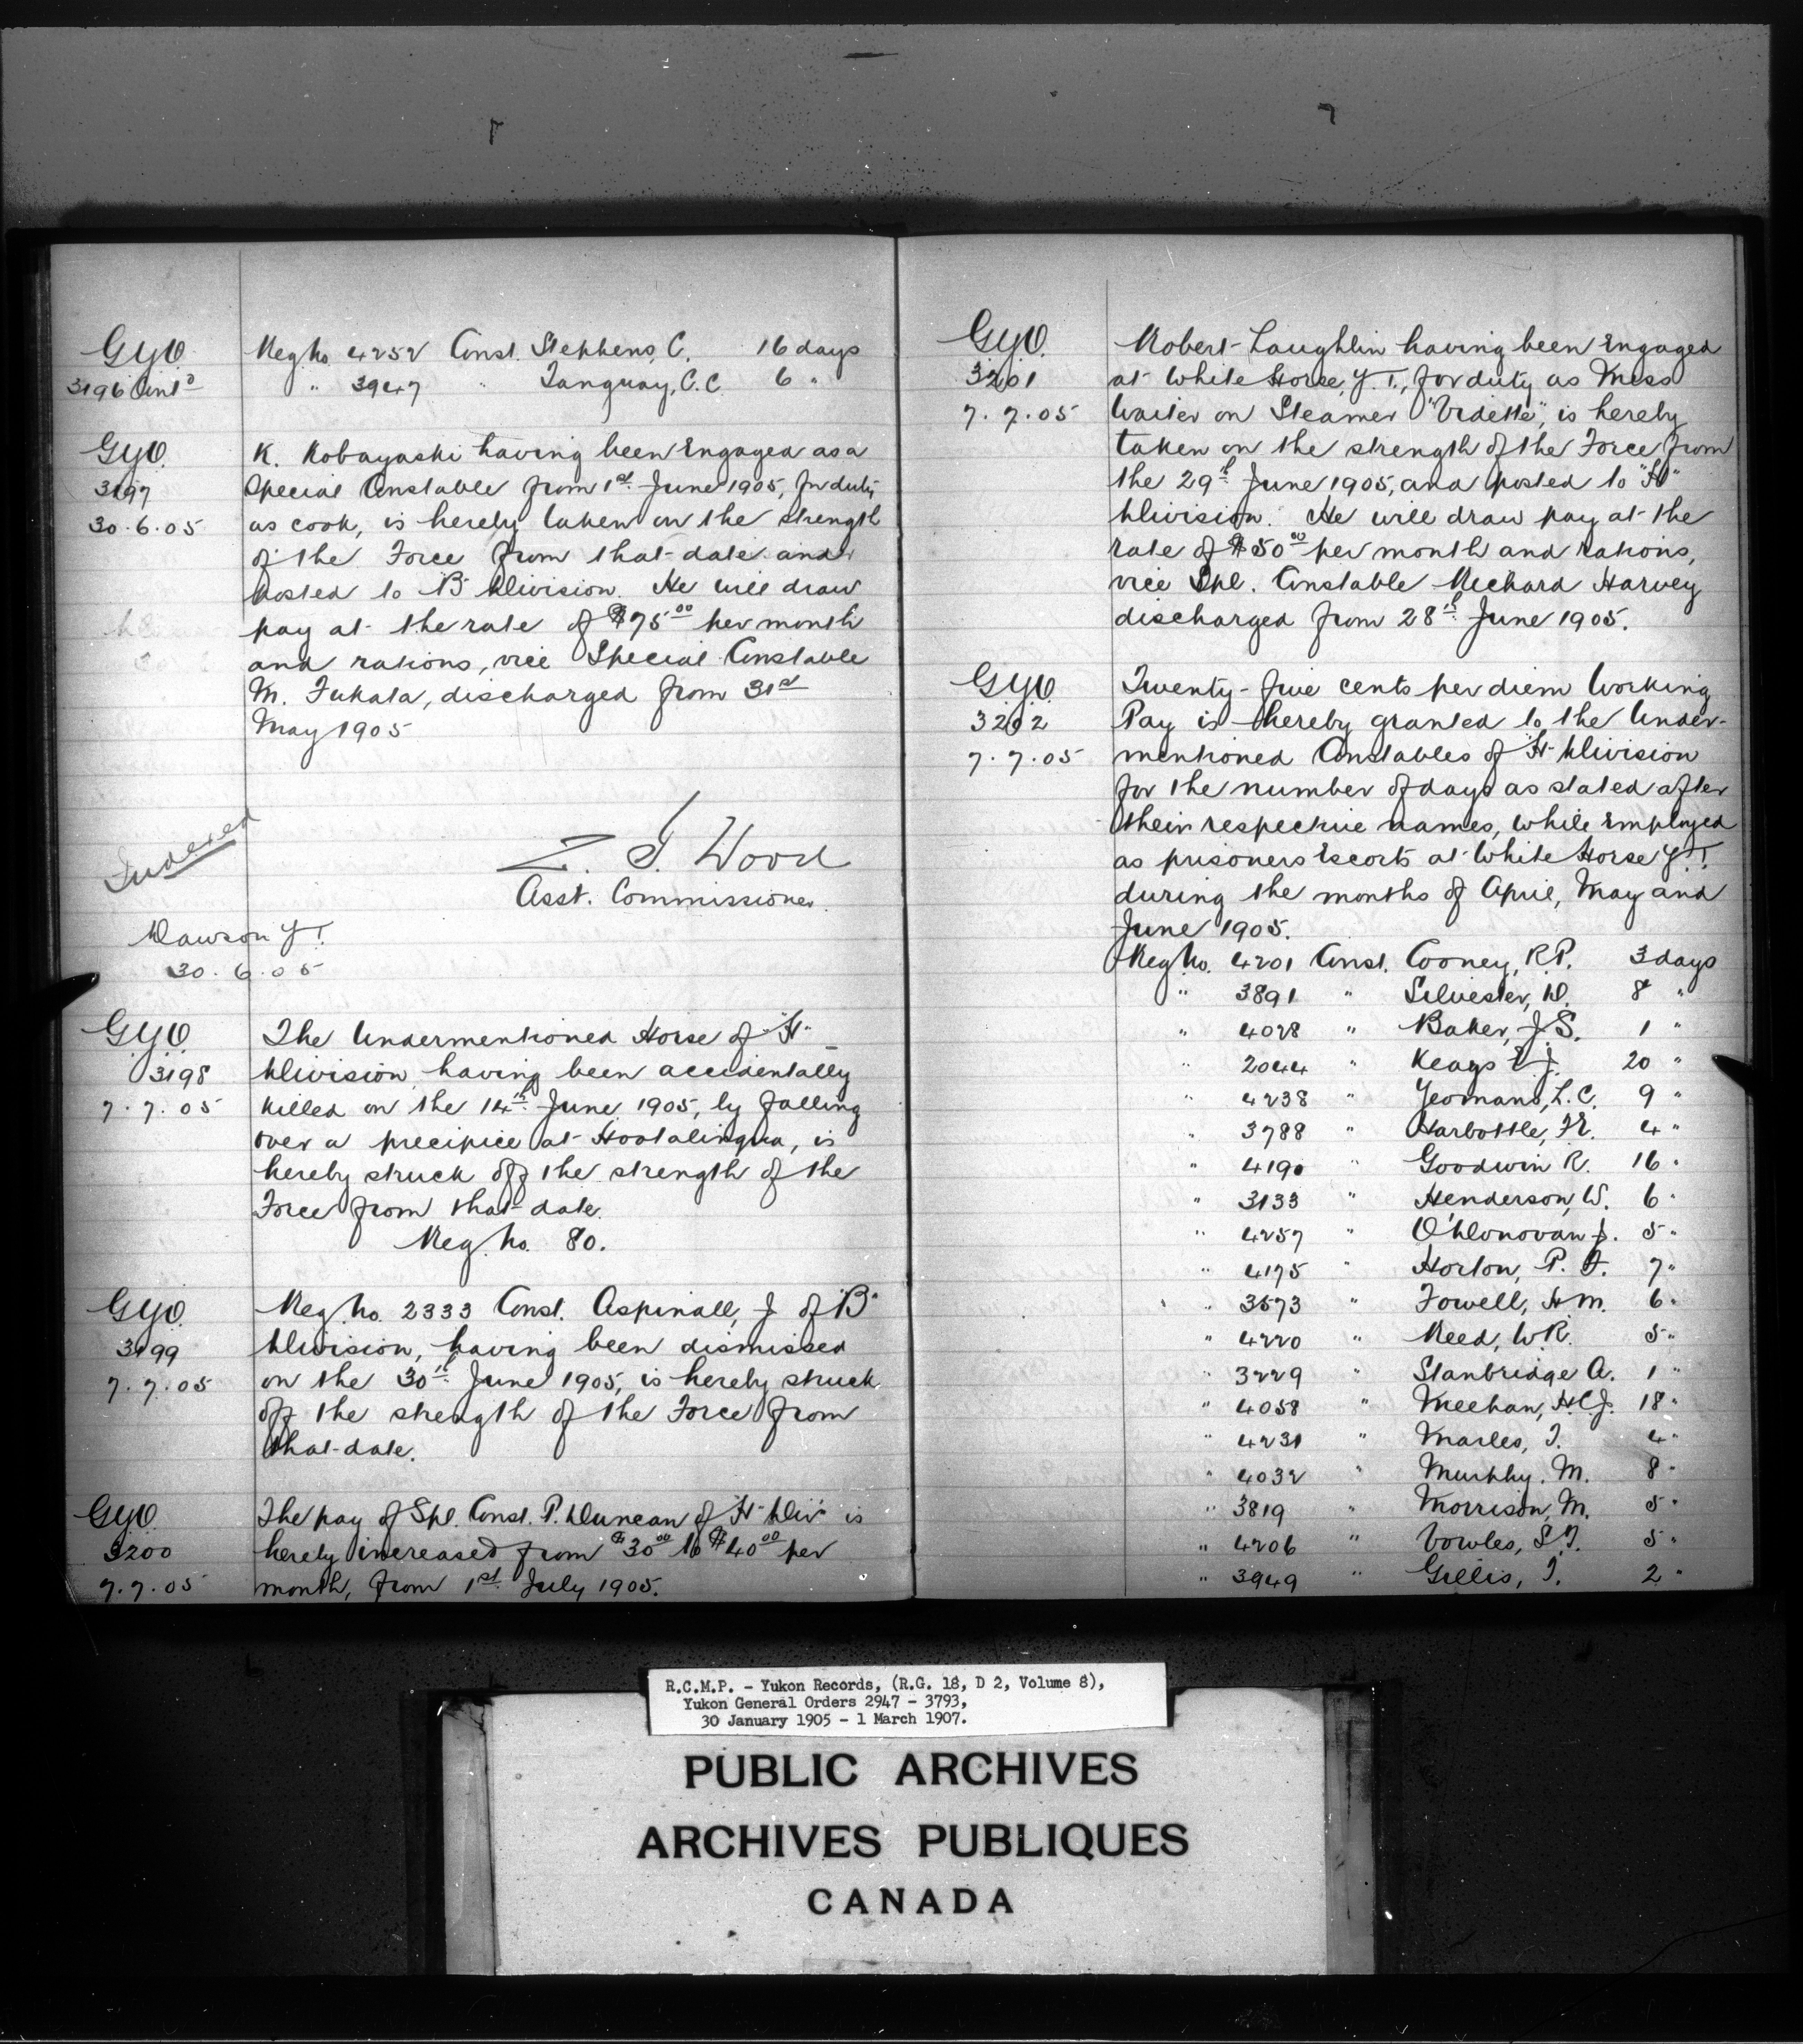 G.Y.O.
3196 Cont'd
Reg No. 4252 Const. Stephens, C. 16 days
" 3947 " Tanguay, C.C. 6 "
G.Y.O.
3197
30.6.05
K. Kobayashi having been Engaged as a
Special Constable from 1st June 1905, for duty
as cook, is hereby taken on the strength
of the Force from that date and
posted to B Division. He will draw
pay at the rate of $75 00 per month
and rations, vice Special Constable
M. Fukata, discharged from 31st
May 1905
Indexed
Z. T. Wood
Asst. Commissioner.
Dawson Y.T.
30.6.05
G.Y.O.
3198
7.7.05
The Undermentioned Horse of "H"
Division having been accidentally
killed on the 14th June 1905, by falling
over a precipice at Hootalinqua, is
hereby struck off the strength of the
Force from that date.
Reg. No. 80.
G.Y.O.
3199
7.7.05
Reg. No. 2333 Const. Aspinall, J. of "B"
Division, having been dismissed
on the 30th June 1905, is hereby struck
off the strength of the Force from
that date.
G.Y.O.
3200
7.7.05
The pay of Spl. Const. P. Duncan of "H" Div. is
hereby increased from $30 00 to $40 00 per
month, from 1st July 1905.
G.Y.O.
3201
7.7.05
Robert Laughlin having been Engaged
at White Horse, Y.T., for duty as Mess
Waiter on Steamer "Vidette", is hereby
taken on the strength of the Force from
the 29th June 1905, and posted to "H"
Division. He will draw pay at the
rate of $50 00 per month and rations,
vice Spl. Constable Richard Harvey
discharged from 28th June 1905.
G.Y.O.
3202
7.7.05
Twenty-five cents per diem Working
Pay is hereby granted to the Under-
mentioned Constables of "H" Division
for the number of days as stated after
their respective names, while Employed
as prisoners Escorts at White Horse Y.T.
during the months of April, May and
June 1905.
Reg No. 4201 Const. Cooney, R.P. 3 days
" 3891 " Silvester, D. 8 "
" 4028 " Baker, J.S. 1 "
" 2044 " Keags J. 20 "
" 4238 " Yeomans, L.C. 9 "
" 3788 " Harbottle, F.E. 4 "
" 4190 " Goodwin R. 16 "
" 3133 " Henderson, W. 6 "
" 4257 " O'Donovan J. 5 "
" 4175 " Horton, P. 7 "
" 3573 " Fowell, H.M. 6 "
" 4220 " Reed, W.R. 5 "
" 3229 " Stanbridge A. 1 "
" 4058 " Meehan, H.C.J. 18 "
" 4231 " Marles, T. 4 "
" 4032 " Murphy. M. 8 "
" 3819 " Morrison, M. 5 "
" 4206 " Vowles, S.T. 5 "
" 3949 " Gillis, T. 2 "
R.C.M.P. - Yukon Records, (R.G. 18, D 2, Volume 8),
Yukon General Orders 2947 - 3793,
30 January 1905 - 1 March 1907.
PUBLIC ARCHIVES
ARCHIVES PUBLIQUES
CANADA